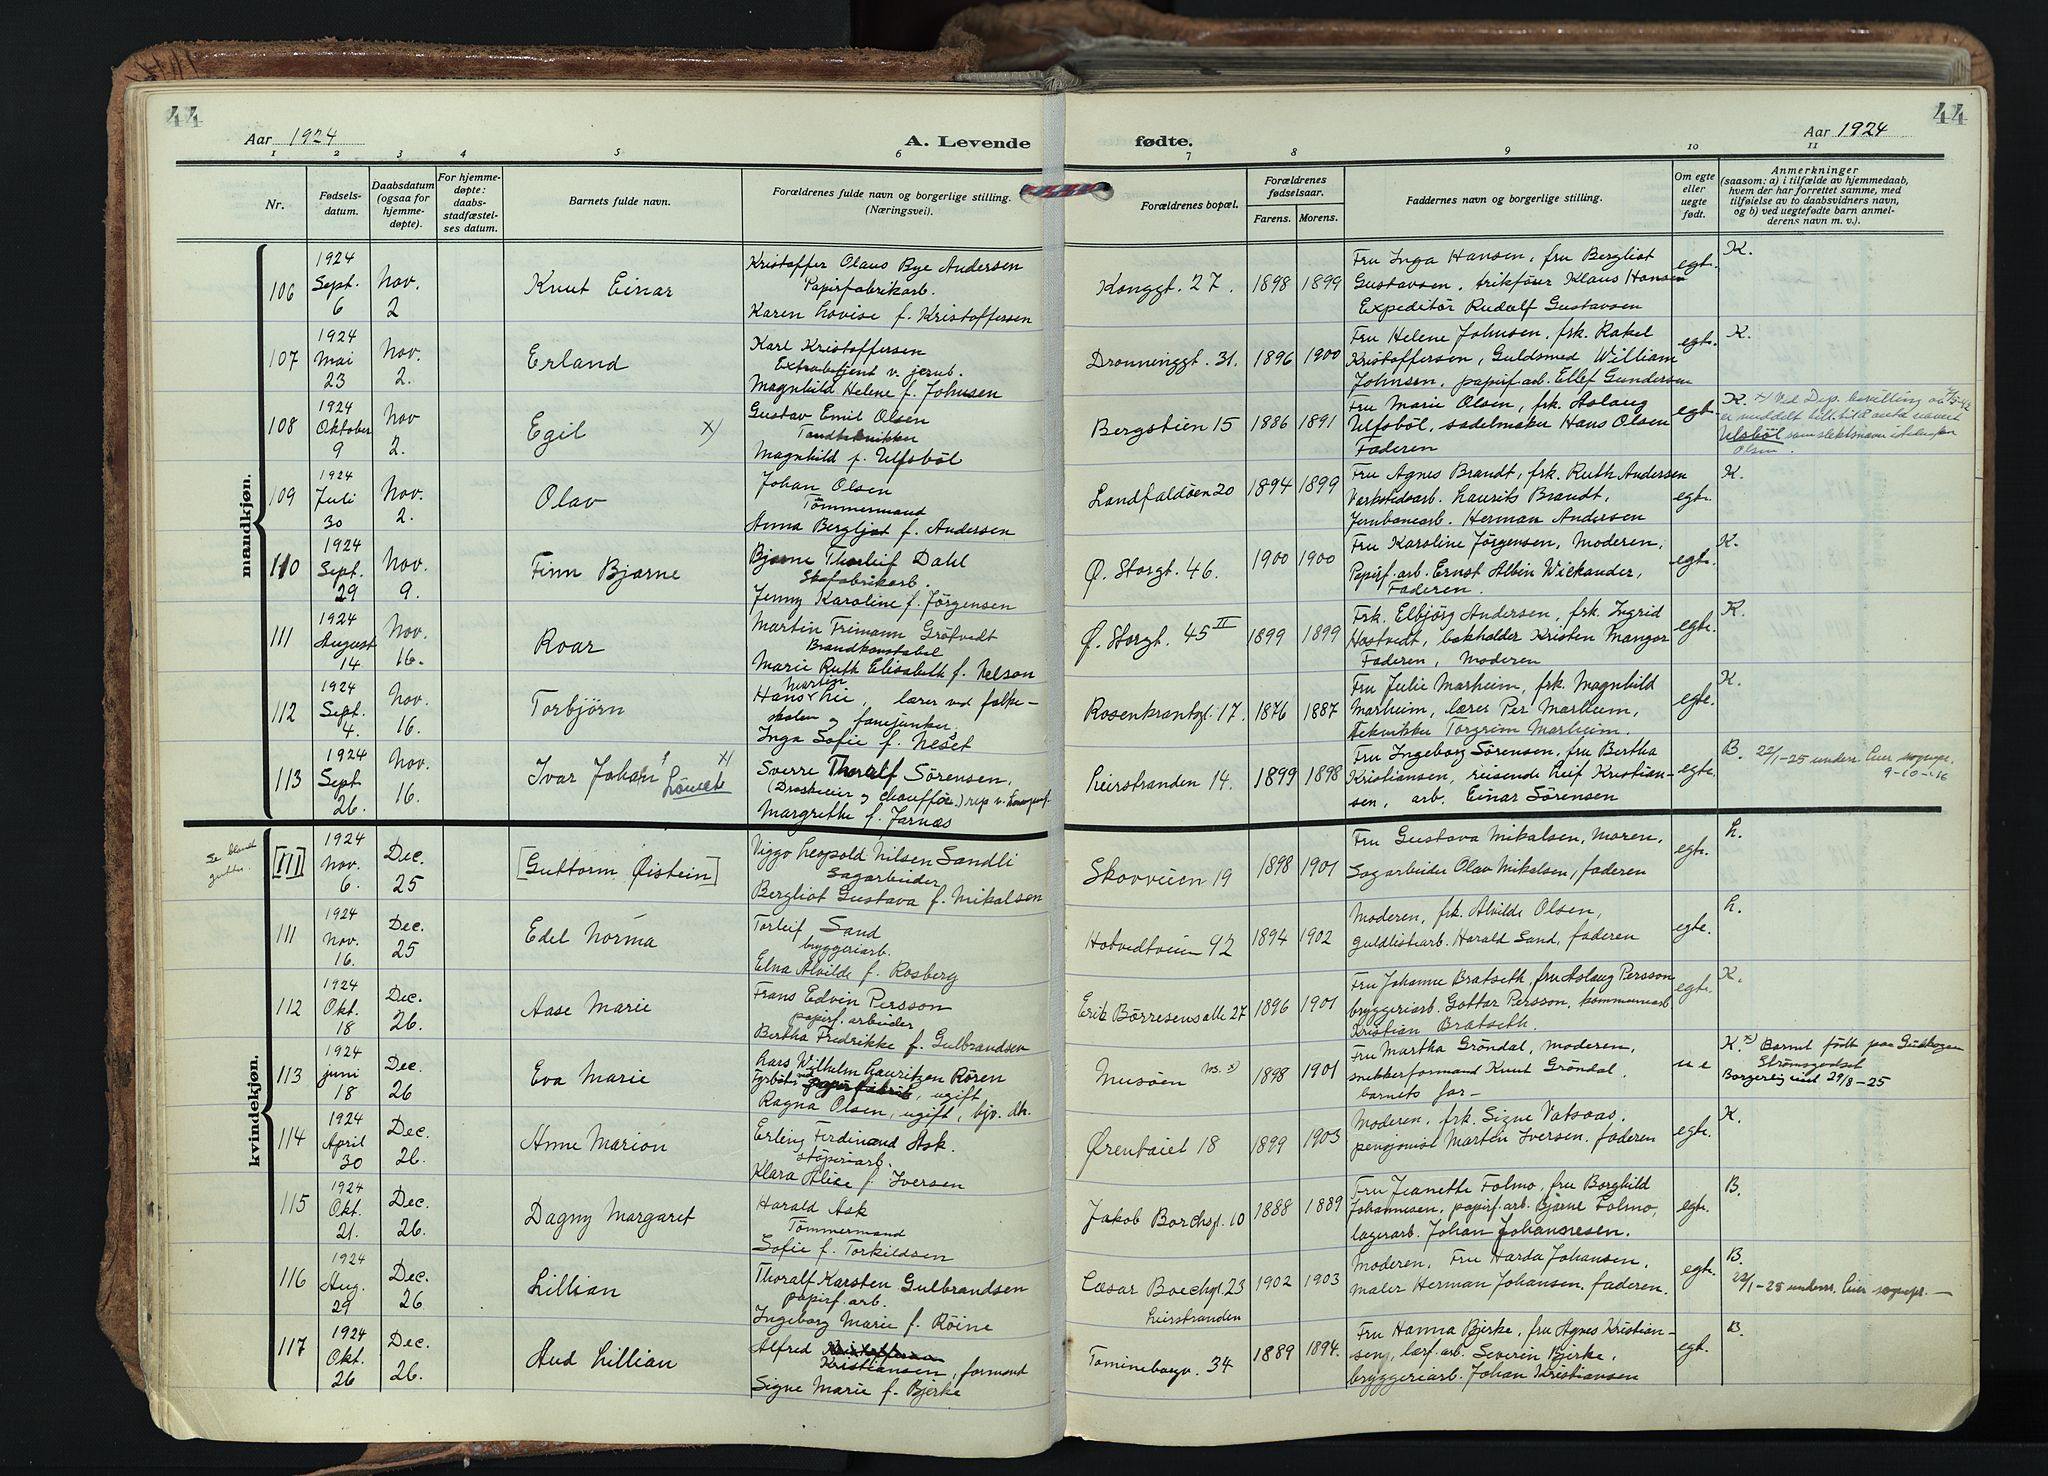 44
44
Aar 1924
A. Levende
fødte.
Aar 1924
1 2 3 4 5 6 7 8 9 10 11
Nr.
Fødsels-
datum.
Daabsdatum
(ogsaa for
hjemme-
døpte).
For hjemme-
døpte:
daabs-
stadfæstel-
ses datum.
Barnets fulde navn.
Forældrenes fulde navn og borgerlige stilling.
(Næringsvei).
Forældrenes bopæl.
Forældrenes
fødselsaar.
Farens. Morens.
Faddernes navn og borgerlige stilling.
Om egte
eller
uegte
født.
Anmerkninger
(saasom: a) i tilfælde av hjemmedaab,
hvem der har forrettet samme, med
tilføielse av to daabsvidners navn,
og b) ved uegtefødte barn anmel-
derens navn m. v.).
mandkjøn.
106
1924
Sept.
6
Nov.
2
Knut Einar
Kristoffer Olaus Bye Andersen
Papirfabrikarb.
Karen Lovise f. Kristoffersen
Konggt. 27. 1898 1899
Fru Inga Hansen, fru Bergliot
Gustavsen, Klaus Hansen
Expeditör Rudolf Gustavsen
egt. K.
107
1924
Mai
23
Nov.
2.
Erland
Karl Kristoffersen
Extrabetjent v. jernb.
Magnhild Helene f. Johnsen
Dronninggt. 31. 1896 1900
Fru Helene Johnsen, frk. Rakel
Kristoffersen, Guldsmed William
Johnsen, papirf.arb. Ellef Gundersen
egt. K.
108
1924
Oktober
9
Nov
2.
Egil x)
Gustav Emil Olsen
Tandtekniker
Magnhild f. Ulfsböl
Bergstien 15 1886 1891
Fru Marie Olsen, frk. Aslaug
Ulfsböl, sadelmaker Hans Olsen
Faderen
egt. K. x) Ved Dep. bevilling av
er meddelt till. til å anta navnet
Ulsböl som slektsnavn istedenfor
Olsen.
109
1924
Juli
30
Nov.
2.
Olav
Johan Olsen
Tömmermand
Anna Bergljot f. Andersen
Landfaldöen 20 1894 1899
Fru Agnes Brandt, frk. Ruth Andersen
Verkstedsarb. Laurits Brandt,
Jernbanearb. Herman Andersen
egt. K.
110
1924
Sept.
29
Nov.
9.
Finn Bjarne
Bjarne Thorleif Dahl
Skofabrikarb.
Jenny Karoline f. Jörgensen
Ø. Storgt. 46. 1900 1900
Fru Karoline Jörgensen, Moderen,
Papirf.arb. Ernst Albin Wickander,
Faderen.
egt. K.
111
1924
August
14
Nov.
16.
Roar
Martin Frimann Grötvedt
Brandkonstabel
Marie Ruth Elisabeth f. Nelson
Ø. Storgt. 45 II 1899 1899
Frk. Elbjörg Andersen, frk. Ingrid
Hostvedt, bokholder Kristen Mangor
Faderen, Moderen
egt. K.
112
1924
Sept.
4.
Nov.
16.
Torbjörn
Martin
Hans Lie, lærer ved folke-
skolen og fanejunker.
Inga Sofie f. Neset
Rosenkrantzgt. 17. 1876 1887
Fru Julie Marheim, frk. Magnhild
Marheim, lærer Per Marheim,
tekniker Torgrim Marheim.
egt. K.
113
1924
Sept
26.
Nov.
16.
Ivar Johan x)
Sverre Thoralf Sörensen,
(Drosjeeier og chaufför.)
Margrethe f. Jarnæs
Leirstranden 14. 1899 1898
Fru Ingeborg Sörensen, fru Bertha
Kristiansen, reisende Leif Kristian-
sen, arb. Einar Sörensen
egt. B. 22/1-25 underr. Lier sognepr.
9-10-46
Se blandt
gutter.
kvindekjøn.
[111]
1924
Nov.
6.
Dec.
25
[Guttorm Øistein]
Viggo Leopold Nilsen Sandli
Sagarbeider
Bergliot Gustava f. Mikalsen
Skovveien 19 1898 1901
Fru Gustava Mikalsen, Moren,
Sagarbeider Olav Mikalsen, faderen
egt. L.
111
1924
Nov.
16.
Dec.
25
Edel Norma
Torleif Sand
bryggeriarb.
Elna Alvilde f. Rosberg
Hotvedtveien 92 1894 1902
Moderen, frk. Alvilde Olsen,
guldlistearb. Harald Sand, faderen
egt. L.
112
1924
Okt.
18
Dec.
26.
Aase Marie
Frans Edvin Persson
papirf. arbeider
Bertha Fredrikke f. Gulbrandsen
Erik Börresens alle 27 1896 1901
Fru Johanne Bratseth, fru Aslaug Persson
bryggeriarb. Gottar Persson, kommunearb
Kristian Bratseth.
egt. K.
113
1924
juni
18
Dec.
26
Eva Marie
Lars Wilhelm Lauritzen Rören
Fyrböter ved papirfabrik, ugift
Ragna Olsen, ugift, hjv. dtr.
Musöen 1898 1901
Fru Martha Gröndal, moderen,
snekkerformand Knut Gröndal.
barnets far-
u e K. x) Barnet födt paa Gulskogen
Strømsgodset
Borgerlig viet 29/8-25
114
1924
April
30
Dec.
26.
Anne Marion
Erling Ferdinand Ask.
stöperiarb.
Klara Alise f. Iversen
Ørentveiet 18 1899 1903
Moderen, frk. Signe Vatsaas,
pensjonist Marten Iversen, faderen
egt. K.
115
1924
Okt.
21.
Dec.
26.
Dagny Margaret
Harald Ask
Tömmermand
Sofie f. Torkildsen
Jakob Borchsgt. 10 1888 1889
Fru Jeanette Folmo, fru Borghild
Johannesen, papirf.arb. Bjarne Folmo,
lagerarb. Johan Johannesen.
egt. B.
116
1924
Aug.
29
Dec.
26
Lillian
Thoralf Karsten Gulbrandsen
papirf.arb.
Ingeborg Marie f. Röine
Cæsar Boechsgt. 23
Leirstranden
1902 1903
Moderen, Fru Harda Johansen,
maler Herman Johansen, faderen.
egt. B.
22/1-25 underr. Lier sognepr. -
117
1924
Okt.
26
Dec.
26.
Aud Lillian
Alfred
Kristiansen, formand
Signe Marie f. Bjerke
Tomineborgv. 34 1889 1894.
Fru Hanna Bjerke, fru Agnes Kristian-
sen, lærf.arb. Severin Bjerke,
bryggeriarb. Johan Kristiansen
egt. B.